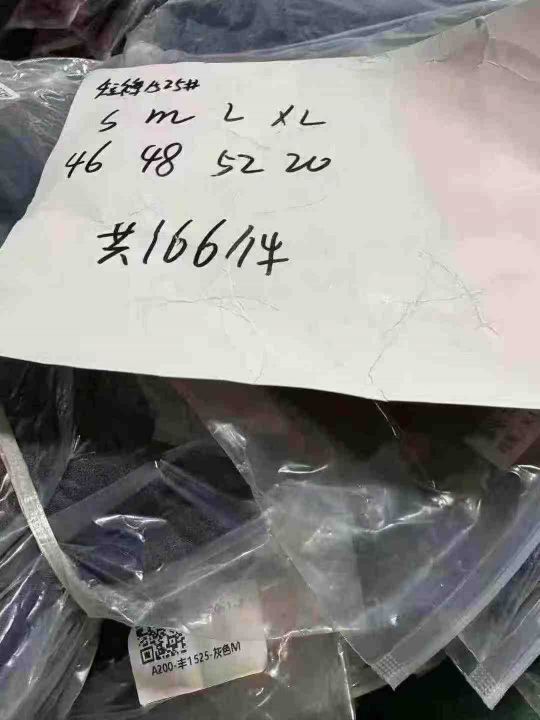 短裤1525#
S M L XL
46 48 52 20
共166件
A200-丰1525-灰色M